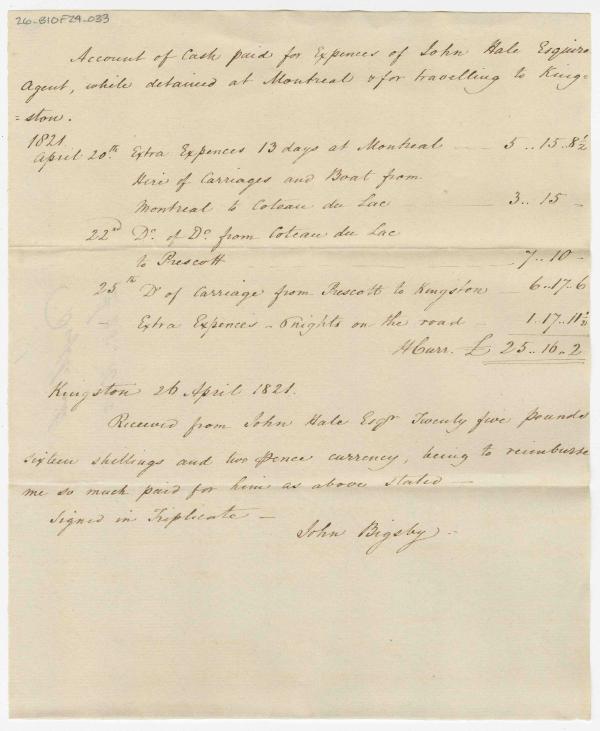 26-810F29-033
Account of Cash paid for Expences of John Hale Esquire
Agent, while detained at Montreal & for travelling to King=
=ston.
1821.
April 20th. Extra Expences 13 days at Montreal 5 .. 15 .. 8 1/2
Hire of Carriages and Boat from
Montreal to Coteau du Lac 3 .. 15 -
22nd Do. of Do. from Coteau du Lac
to Prescott 7 .. 10 -
25th Do of Carriage from Prescott to Kingston 6 .. 17 .. 6
- Extra Expences - 6 nights on the road - 1 . 17 . 11 1/2
HCurr. £ 25 .. 16 .. 2
Kingston 26 April 1821.
Received from John Hale Esqr Twenty five pounds
sixteen shillings and two pence currency, being to reimburse
me so much paid for him as above stated -
Signed in Triplicate -
John Bigsby -